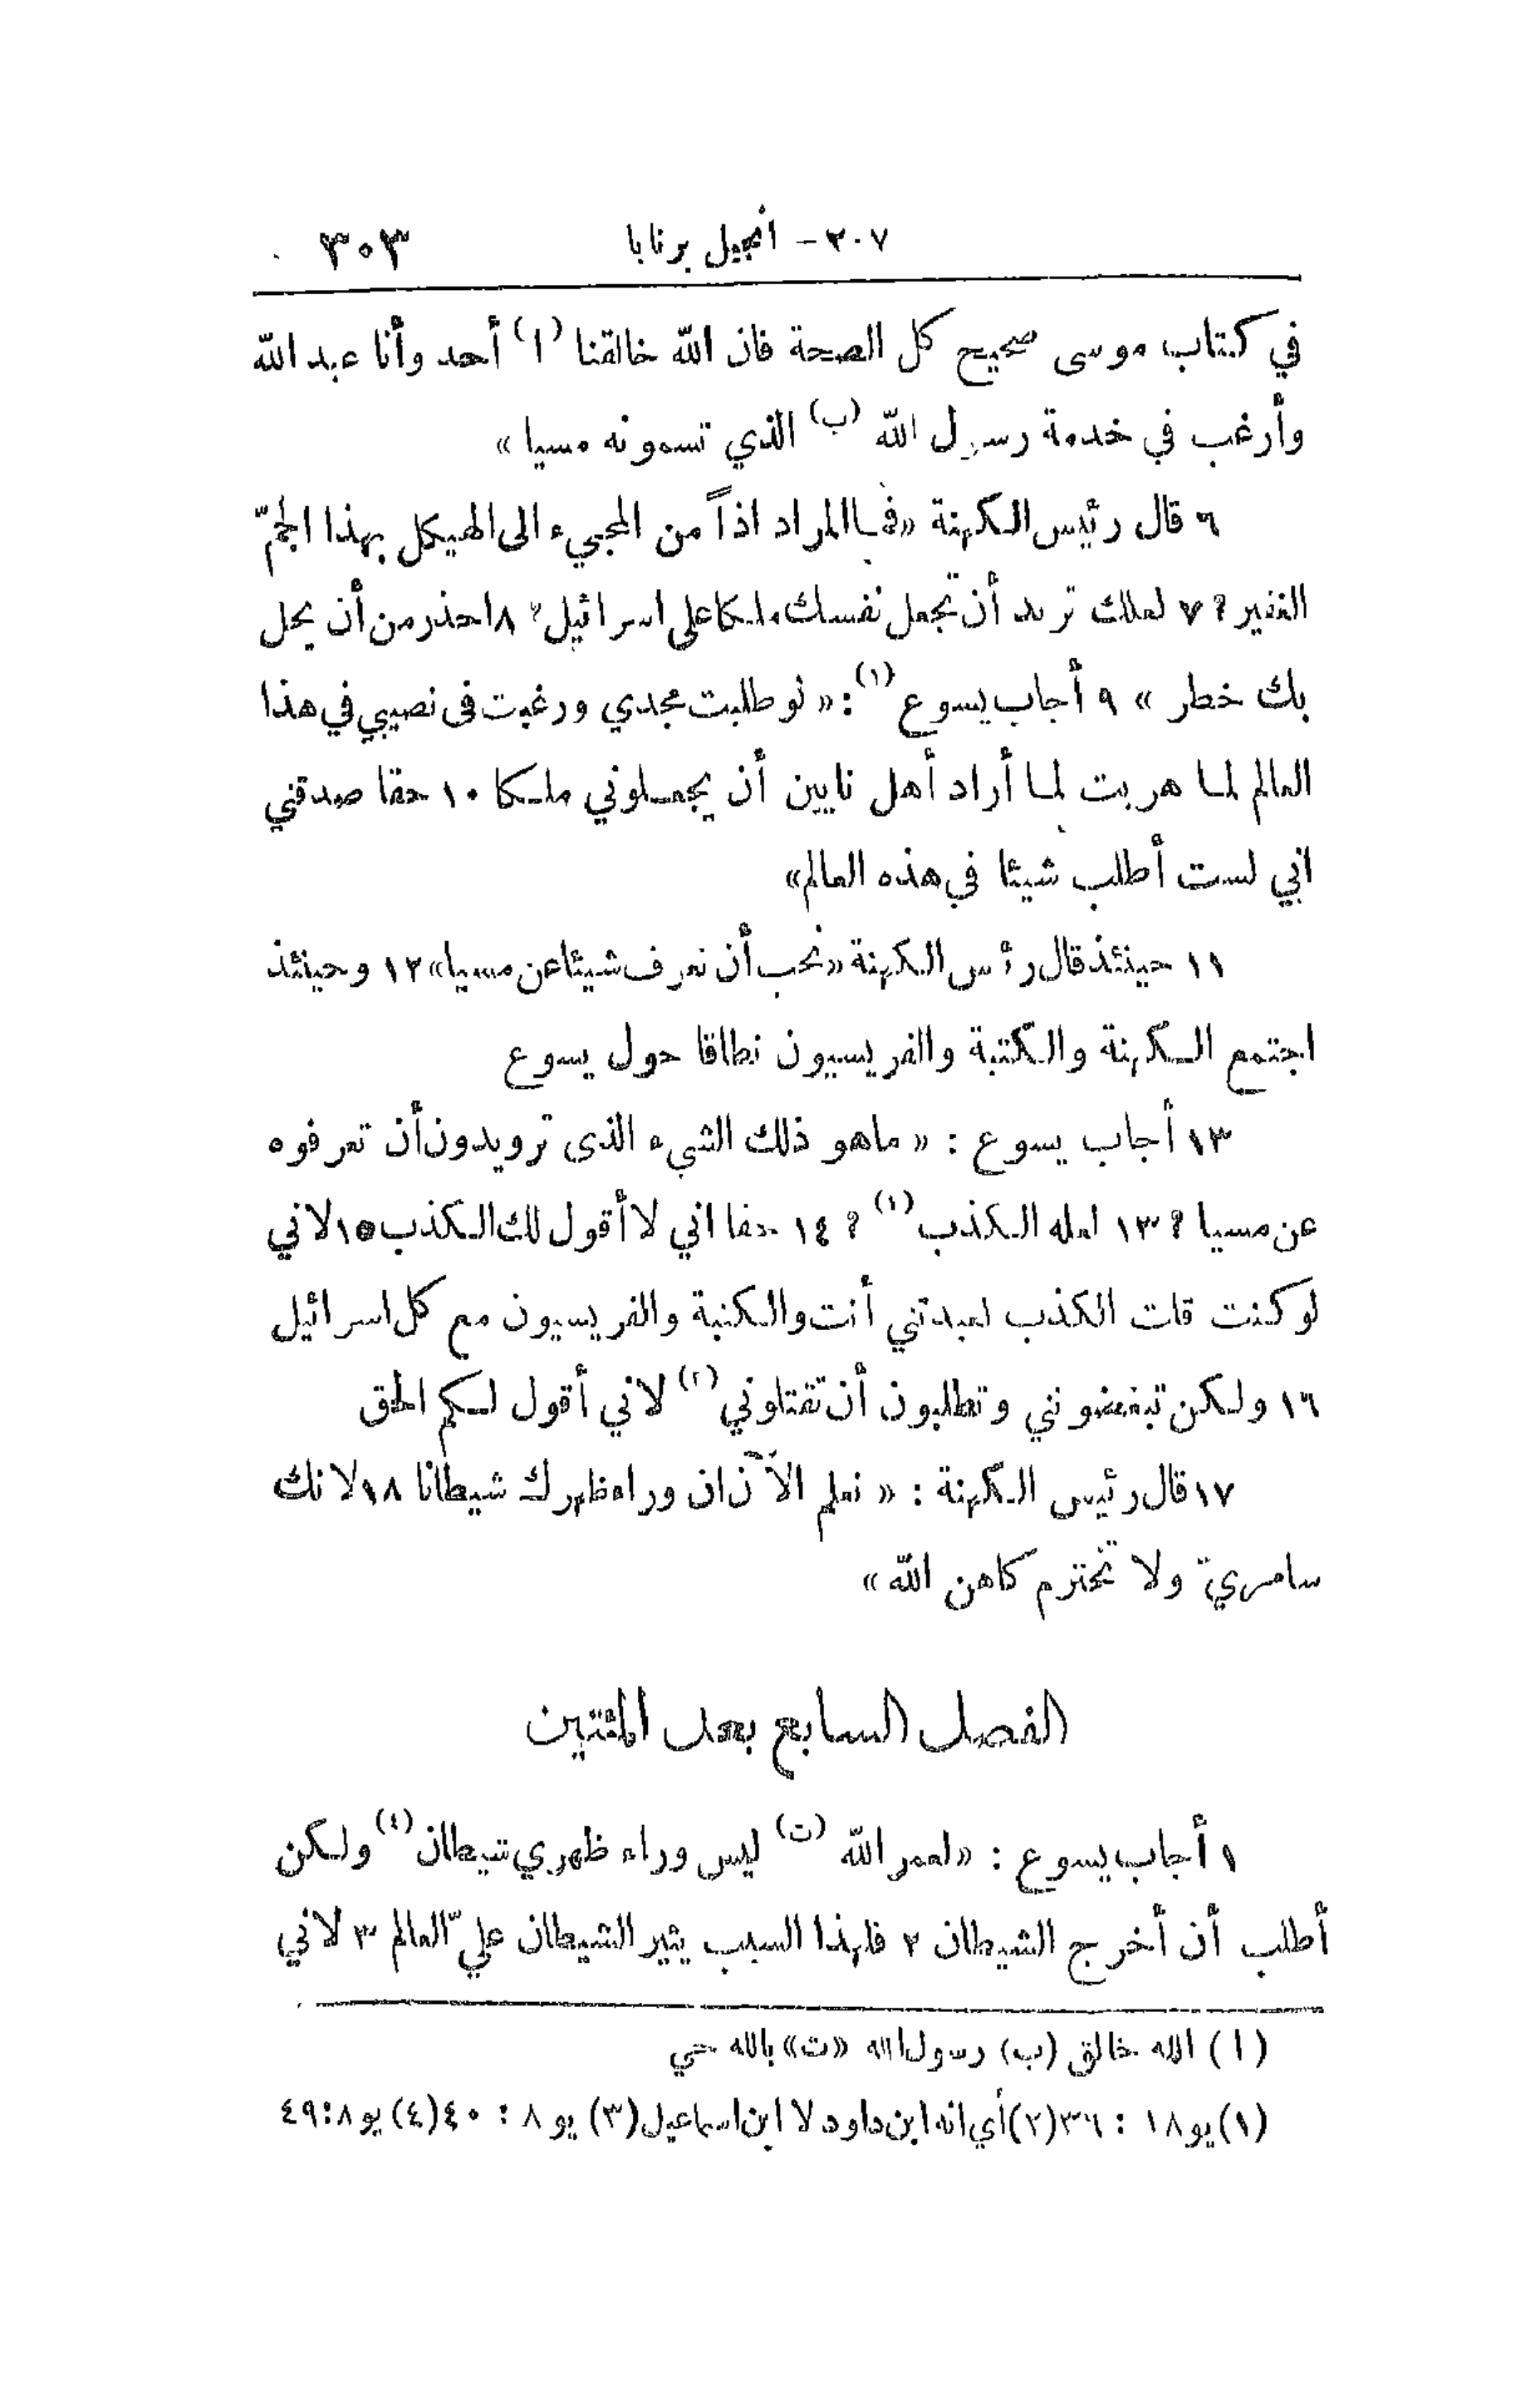 ٢٠٧ - انجيل برنابا ٣٠٣
في كتاب موسى صحيح كل الصحة فان الله خالقنا (ا) أحد وأنا عبد الله
وأرغب في خدمة رسول الله (ب) الذي تسمونه مسيا »
٦ قال رئيس الكهنة «فما المراد اذاً من المجيء الى الهيكل بهذا الجمّ
الغفير ? ٧ لعلك تريد أن تجعل نفسك ملكا على اسرائيل ? ٨ احذر من أن يحل
بك خطر » ٩ أجاب يسوع (١) : « لو طلبت مجدي ورغبت فى نصيبي في هذا
العالم لما هربت لما أراد أهل نايين أن يجعلوني ملكا ١٠ حقا صدقني
اني لست أطلب شيئا في هذه العالم»
١١ حينئذ قال رئس الكهنة «نحب أن نعرف شيئا عن مسيا» ١٢ وحينئذ
اجتمع الكهنة والكتبة والفريسيون نطاقا حول يسوع
١٣ أجاب يسوع : « ماهو ذلك الشيء الذى ترويدون أن تعرفوه
عن مسيا ? ١٣ لعله الكذب (٢) ? ١٤ حقا اني لا أقول لك الكذب ١٥ لاني
لو كنت قلت الكذب لعبدتني أنت والكتبة والفريسيون مع كل اسرائيل
١٦ ولكن تبغضونني وتطلبون أن تقتلوني (٢) لاني أقول لكم الحق
١٧ قال رئيس الكهنة : « نعلم الآن ان وراء ظهرك شيطانا ١٨ لانك
سامريّ ولا تحترم كاهن الله »
الفصل السابع بعد المئتين
١ أجاب يسوع : «لعمر الله (ت) ليس وراء ظهري شيطان (٤) ولكن
أطلب أن أخرج الشيطان ٢ فلهذا السبب يثير الشيطان عليّ العالم ٣ لاني
(ا) الله خالق (ب) رسول الله «ت» بالله حي
(١) يو ١٨ : ٣٦ (٢) أي انه ابن داود لا ابن اسماعيل (٣) يو ٨ : ٤٠ (٤) يو ٨:٤٩